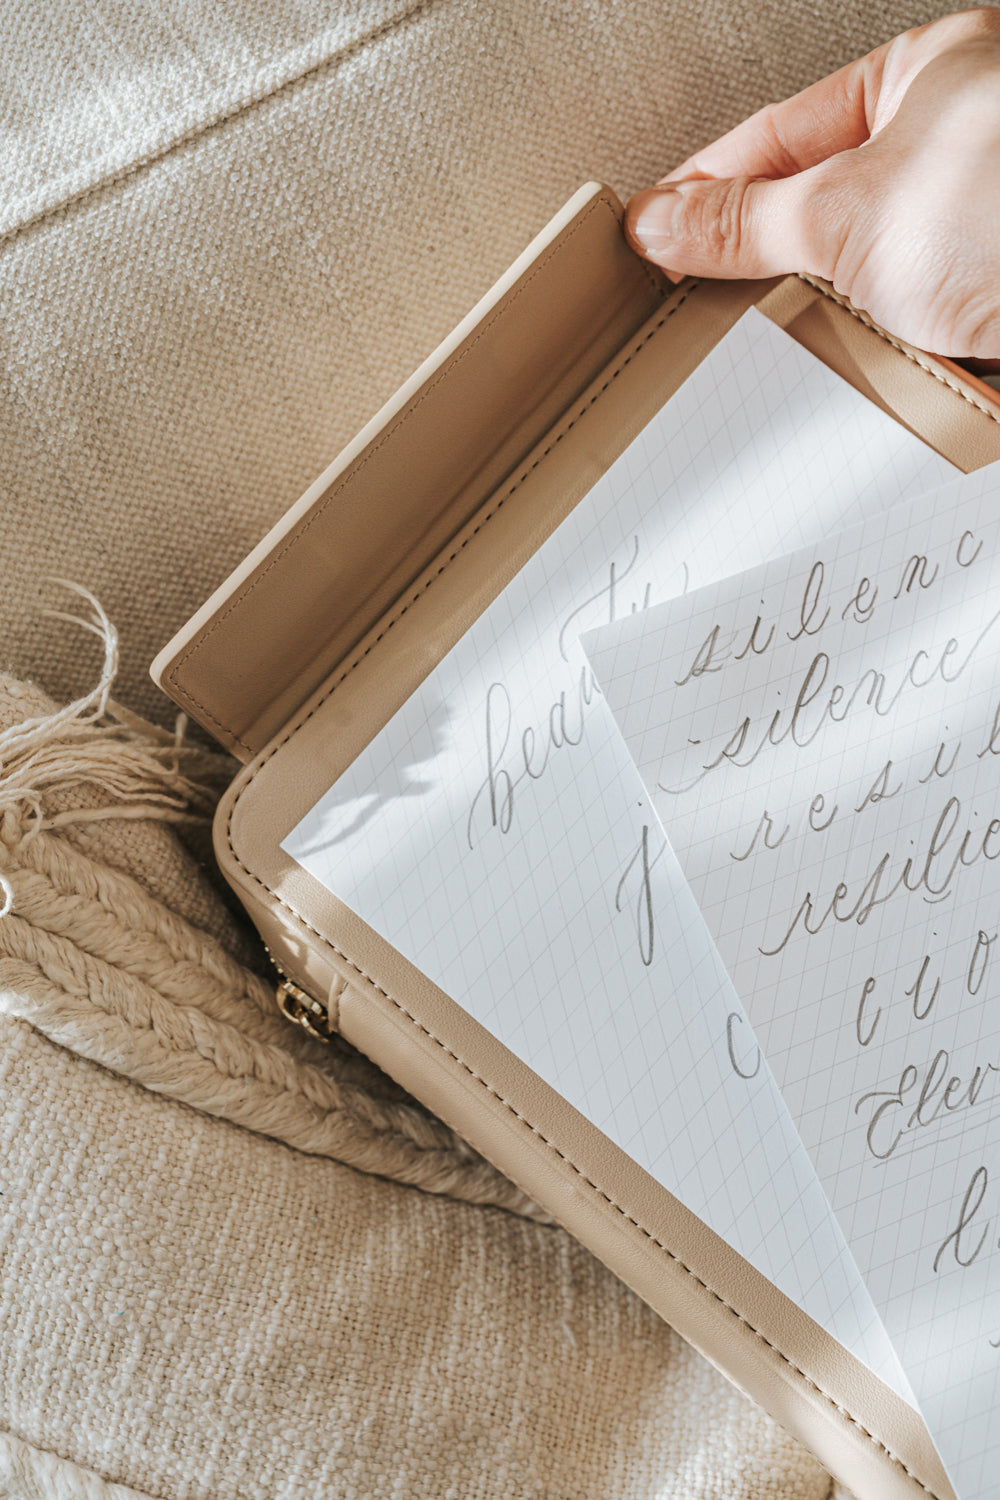 beauty
j
c
silenc
silence
resil
resilie
cio
Elev
l